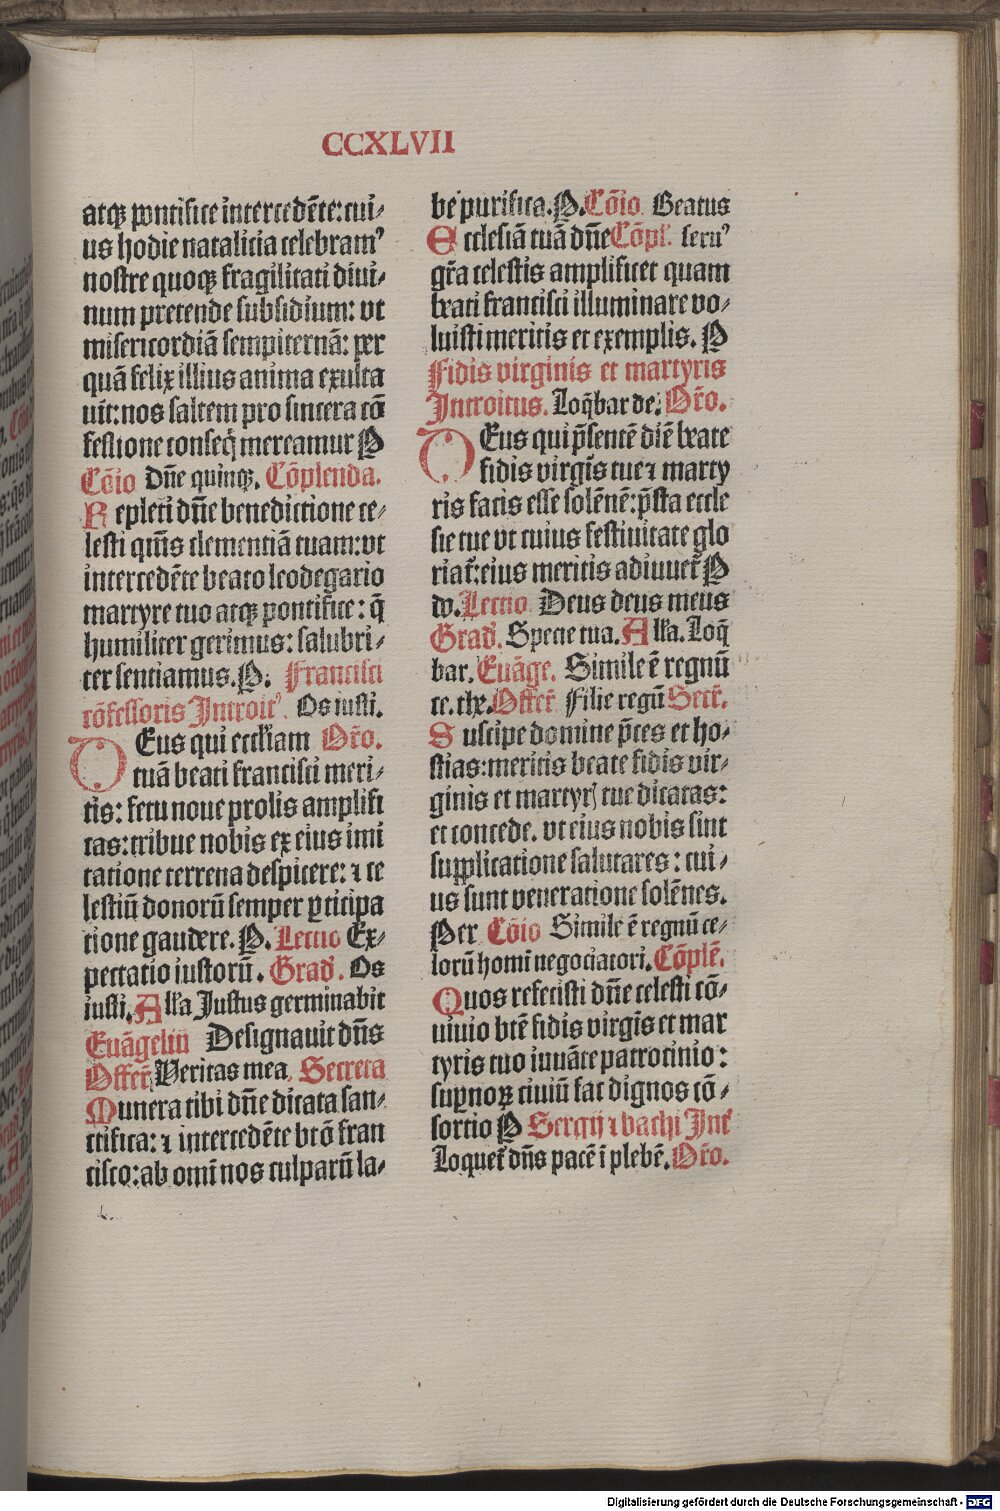 CCXLVII
atqꝫ pontifice intercedēte: cui⸗
us hodie natalicia celebramꝰ
nostre quoqꝫ fragilitati diui⸗
num pretende subsidium: vt
misericordiā sempiternā: per
quā felix illius anima exulta
uit: nos saltem pro sincera cō
fessione conseq̄ mereamur P
Cōio Dn̄e quinqꝫ. Cōplenda.
Repleti dn̄e benedictione ce⸗
lesti qm̄s clementiā tuam: vt
intercedēte beato leodegario
martyre tuo atqꝫ pontifice: q̄
humiliter gerimus: salubri⸗
ter sentiamus. P. Francisci
cōfessoris Introitꝰ. Os iusti.
DEus qui eccl̄iam Or̄o.
tuā beati francisci meri⸗
tis: fetu noue prolis amplifi
cas: tribue nobis ex eius imi
tatione terrena despicere: ⁊ ce
lestiū donorū semper ꝑticipa
tione gaudere. P. Lectio Ex⸗
pectatio iustorū. Grad̄. Os
iusti. All̄a Justus germinabit
Euāgeliū Designauit dn̄s
Offer̄ Veritas mea. Secreta
Munera tibi dn̄e dicata san⸗
ctifica: ⁊ intercedēte btō fran
cisco: ab om̄i nos culparū la⸗
be purifica. P. Cōio Beatus
Ecclesiā tuā dn̄e Cōpl̄. seruꝰ
gr̄a celestis amplificet quam
beati francisci illuminare vo⸗
luisti meritis et exemplis. P
Fidis virginis et martyris
Introitus. Loq̄bar de. Or̄o.
DEus qui p̄sentē diē beate
fidis virgīs tue ⁊ marty
ris facis esse solēnē: p̄sta eccle
sie tue vt cuius festiuitate glo
riat̄: eius meritis adiuuet̄ P
dn̄. Lectio Deus deus meus
Grad̄. Specie tua. All̄a. Loq̄
bar. Euāge. Simile ē regnū
ce. thꝫ. Offer̄ Filie regū Secr̄.
Suscipe domine p̄ces et ho⸗
stias: meritis beate fidis vir⸗
ginis et martyrꝭ tue dicatas:
et concede. vt eius nobis sint
supplicatione salutares: cui⸗
us sunt veneratione solēnes.
Per Cōio Simile ē regnū ce⸗
lorū homi negociatori. Cōplē.
Quos refecisti dn̄e celesti cō⸗
uiuio btē fidis virgīs et mar
tyris tuo iuuāte patrocinio:
sup̄noꝝ ciuiū fac dignos cō⸗
sortio P Sergij ⁊ bachi Int̄
Loquet̄ dn̄s pacē ī plebē. Or̄o.
Digitalisierung gefördert durch die Deutsche Forschungsgemeinschaft - DFG